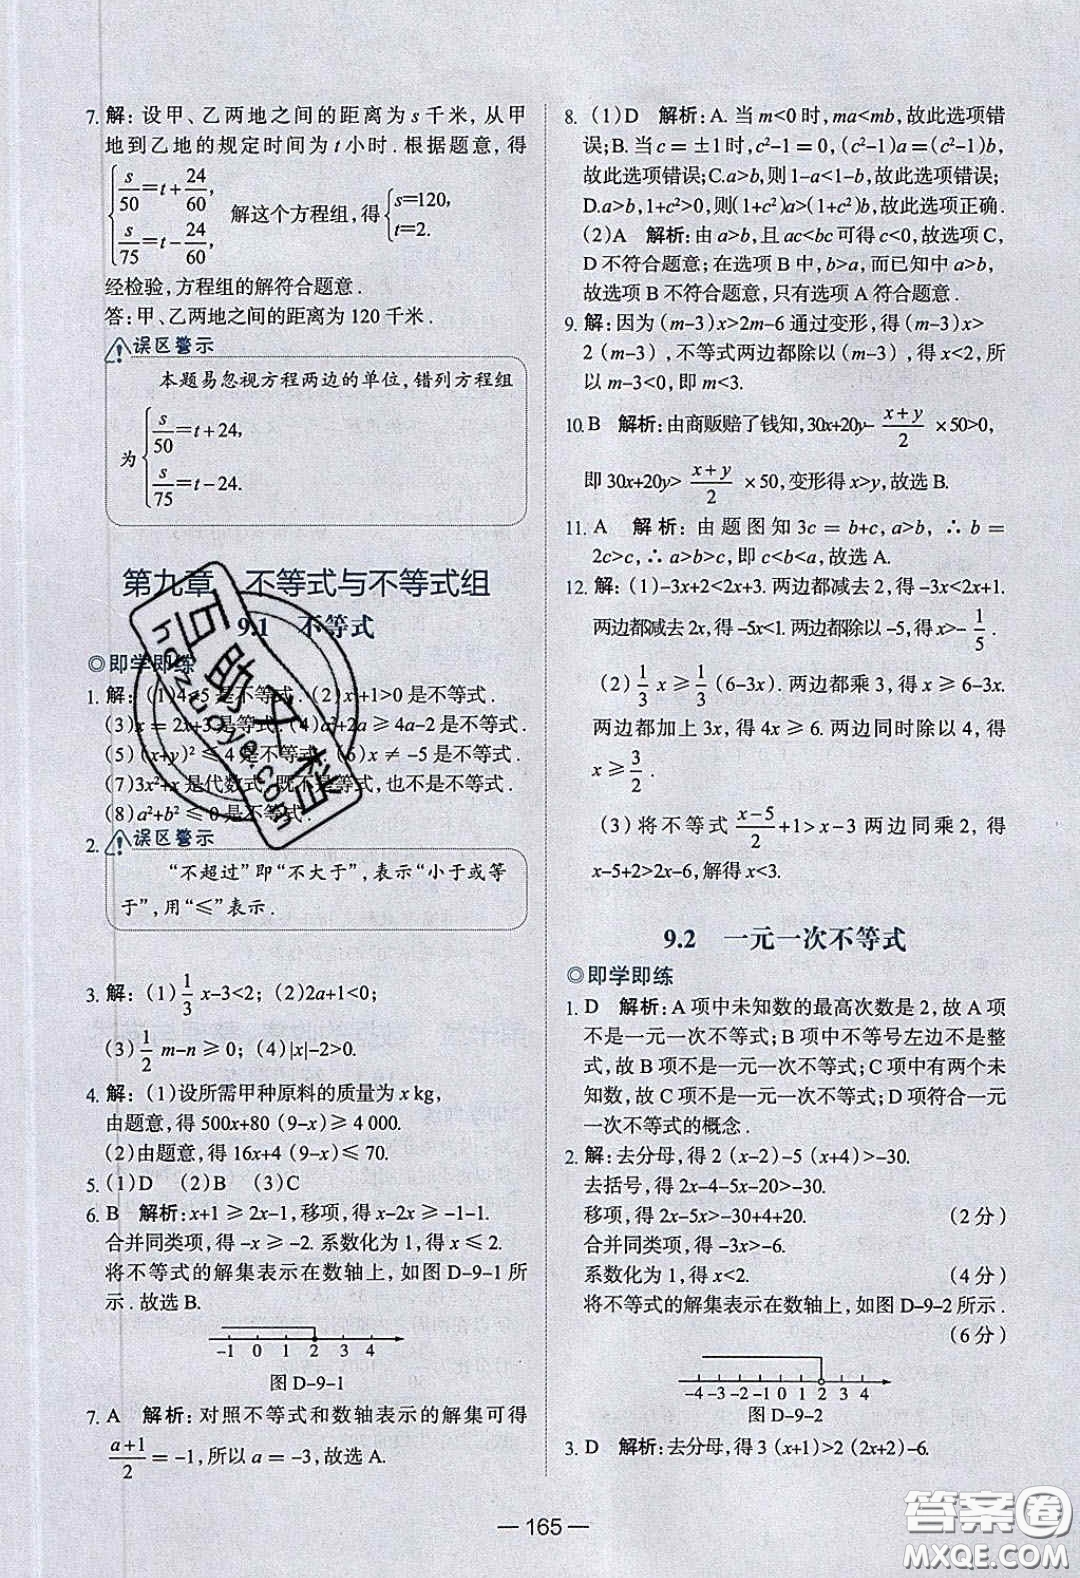 7. 解:设甲、乙两地之间的距离为 s 千米,从甲
地到乙地的规定时间为 t 小时.根据题意,得
{s/50=t+24/60, s/75=t-24/60. 解这个方程组,得{s=120, t=2.
经检验,方程组的解符合题意.
答:甲、乙两地之间的距离为 120 千米.
误区警示
本题易忽视方程两边的单位,错列方程组
为{s/50=t+24, s/75=t-24.
第九章 不等式与不等式组
9.1 不等式
◎即学即练
1. 解:(1)4<5 是不等式.(2)x+1>0 是不等式.
(3)x=2x+3 是等式.(4)a²+2a≥4a-2 是不等式.
(5)(x+y)²≤4 是不等式.(6)x≠-5 是不等式.
(7)3x²+x 是代数式,既不是等式,也不是不等式.
(8)a²+b²≤0 是不等式.
2. 误区警示
“不超过”即“不大于”,表示“小于或等
于”,用“≤”表示.
3. 解:(1)1/3 x-3<2;(2)2a+1<0;
(3)1/2 m-n≥0;(4)|x|-2>0.
4. 解:(1)设所需甲种原料的质量为 x kg,
由题意,得 500x+80(9-x)≥4 000.
(2)由题意,得 16x+4(9-x)≤70.
5. (1)D (2)B (3)C
6. B 解析:x+1≥2x-1,移项,得 x-2x≥-1-1.
合并同类项,得-x≥-2. 系数化为 1,得 x≤2.
将不等式的解集表示在数轴上,如图 D-9-1 所
示.故选 B.
-1 0 1 2 3 4
图 D-9-1
7. A 解析:对照不等式和数轴表示的解集可得
(a+1)/2=-1,所以 a=-3,故选 A.
8. (1)D 解析:A. 当 m<0 时,ma<mb,故此选项错
误;B. 当 c=±1 时,c²-1=0,(c²-1)a=(c²-1)b,
故此选项错误;C.a>b,则 1-a<1-b,故此选项错误;
D.a>b,1+c²>0,则(1+c²)a>(1+c²)b,故此选项正确.
(2)A 解析:由 a>b,且 ac<bc 可得 c<0,故选项 C,
D 不符合题意;在选项 B 中,b>a,而已知中 a>b,
故选项 B 不符合题意,只有选项 A 符合题意.
9. 解:因为(m-3)x>2m-6 通过变形,得(m-3)x>
2(m-3),不等式两边都除以(m-3),得 x<2,所
以 m-3<0,即 m<3.
10. B 解析:由商贩赔了钱知,30x+20y-(x+y)/2×50>0,
即 30x+20y>(x+y)/2×50,变形得 x>y,故选 B.
11. A 解析:由题图知 3c=b+c,a>b,∴b=
2c>c,∴a>b>c,即 c<b<a,故选 A.
12. 解:(1)-3x+2<2x+1. 两边都减去 2,得-3x<2x+1.
两边都减去 2x,得-5x<1. 两边都除以-5,得 x>-1/5.
(2)1/3 x≥1/3(6-3x). 两边都乘 3,得 x≥6-3x.
两边都加上 3x,得 4x≥6. 两边同时除以 4,得
x≥3/2.
(3)将不等式(x-5)/2+1>x-3 两边同乘 2,得
x-5+2>2x-6,解得 x<3.
9.2 一元一次不等式
◎即学即练
1. D 解析:A 项中未知数的最高次数是 2,故 A 项
不是一元一次不等式;B 项中不等号左边不是整
式,故 B 项不是一元一次不等式;C 项中有两个未
知数,故 C 项不是一元一次不等式;D 项符合一元
一次不等式的概念.
2. 解:去分母,得 2(x-2)-5(x+4)>-30.
去括号,得 2x-4-5x-20>-30.
移项,得 2x-5x>-30+4+20. (2分)
合并同类项,得-3x>-6.
系数化为 1,得 x<2. (4分)
将不等式的解集表示在数轴上,如图 D-9-2 所示.
(6分)
-4 -3 -2 -1 0 1 2 3 4
图 D-9-2
3. D 解析:去分母,得 3(x+1)>2(2x+2)-6.
— 165 —
答案圈
MXQE.COM